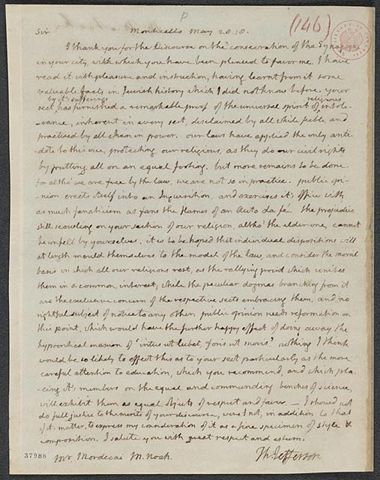 (146)
Sir Monticello May 28. 18.
I thank you for the Discourse on the consecration of the Synagogue
in your city, with which you have been pleased to favor me. I have
read it with pleasure and instruction, having learnt from it some
valuable facts in Jewish history which I did not know before. your
by it's sufferings religious
sect has furnished a remarkable proof of the universal spirit of intole-
-rance, inherent in every sect, disclaimed by all while feeble, and
practised by all when in power. our laws have applied the only anti-
dote to this vice, protecting our religious, as they do our civil rights
by putting all on an equal footing. but more remains to be done.
for altho' we are free by the law, we are not so in practice. public opi-
nion erects itself into an Inquisition, and exercises it's office with
as much fanaticism as fans the flames of an Auto da fé. the prejudice
still scowling on your section of our religion, altho' the elder one, cannot
be unfelt by yourselves. it is to be hoped that individual dispositions will
at length mould themselves to the model of the law, and consider the moral
basis on which all our religions rest, as the rallying point which unites
them in a common interest; while the peculiar dogmas branching from it
are the exclusive concern of the respective sects embracing them, and no
rightful subject of notice to any other. public opinion needs reformation on
this point, which would have the further happy effect of doing away the
hypocritical maxim of 'intus ut lubet, foris ut moris'. nothing I think
would be so likely to effect this as to your sect particularly as the more
careful attention to education, which you recommend, and which pla-
cing it's members on the equal and commanding benches of science
will exhibit them as equal objects of respect and favor. I should not
do full justice to the merits of your discourse, were I not, in addition to that
of it's matter, to express my consideration of it as a fine specimen of style &
composition. I salute you with great respect and esteem.
Th: Jefferson
37988
Mr. Mordecai M. Noah.